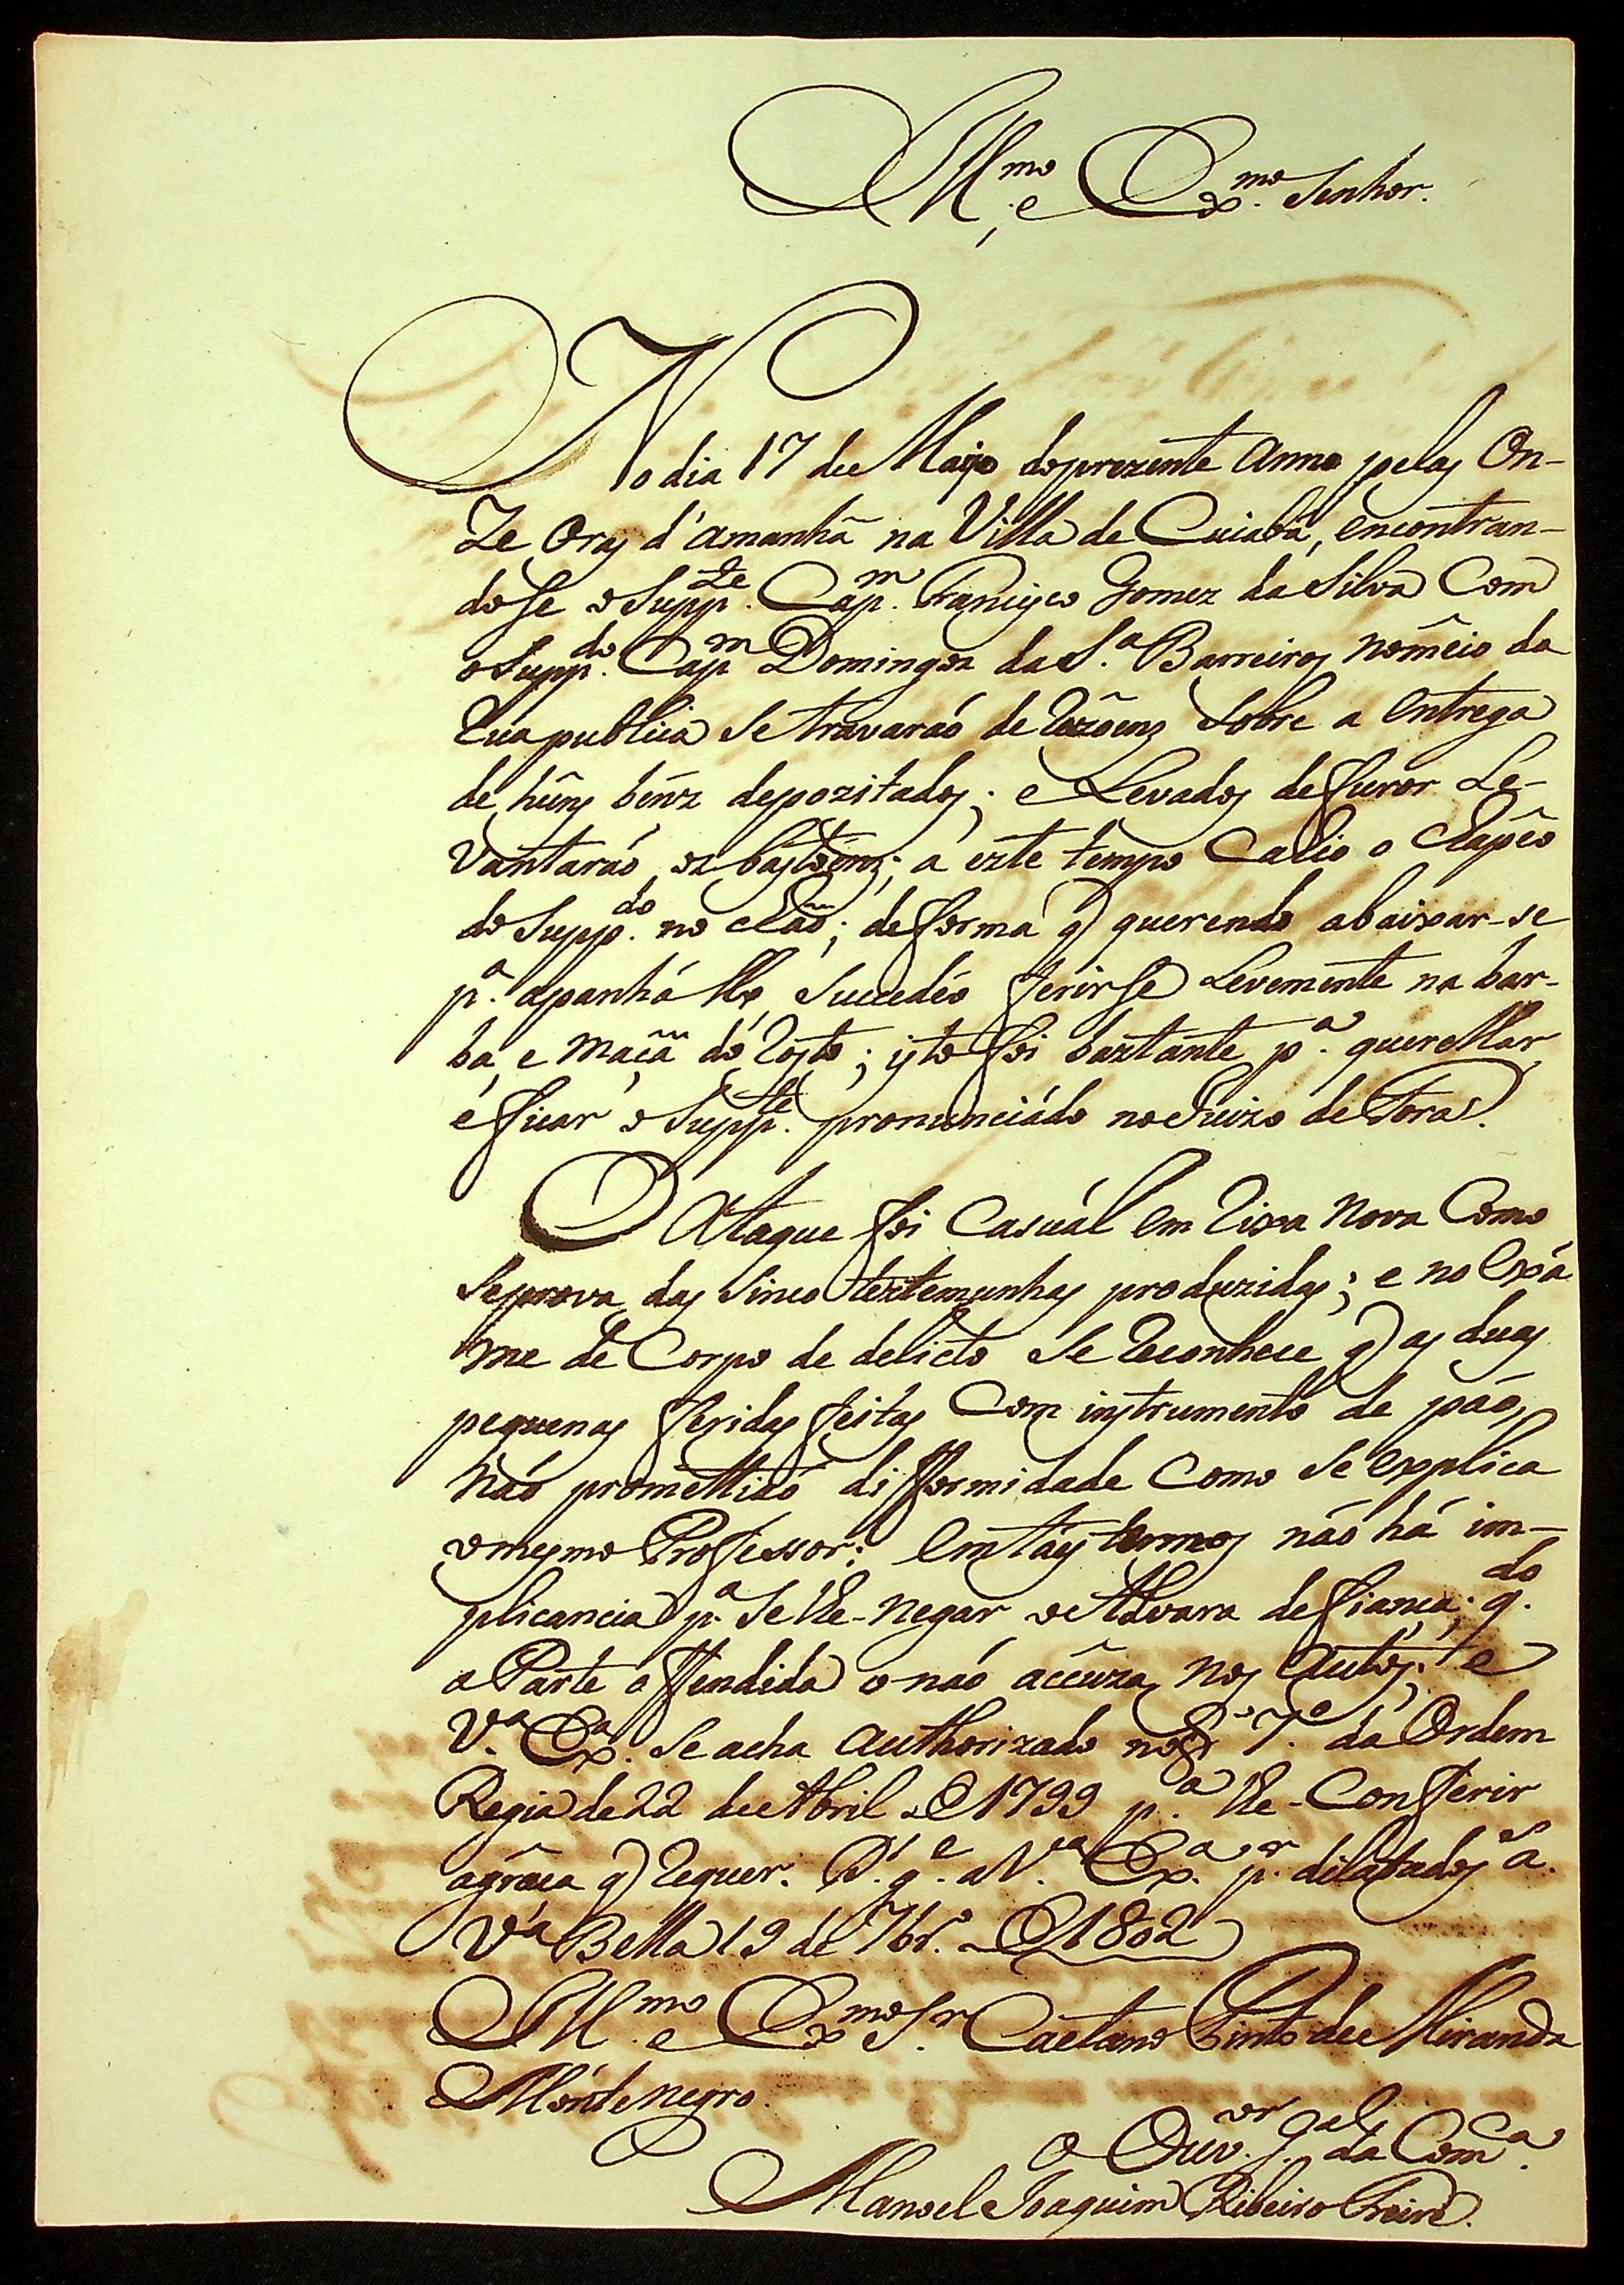 Ill.mo e Ex.mo Senhor.
No dia 17 de Mayo do prezente anno pelas On-
ze Oras d'amanhã na Villa de Cuiabá, encontran-
do se o Supp.te Cap.m Francisco Gomez da Silva Com
o Supp.do Cap.m Domingos da S.a Barreiros no mêio da
Rua publica Se travaraõ de Razõens Sobre a entrega
de hũns bẽnz depozitados; e Levados de furor Le-
vantaraó, oz bastõens; a ezte tempo Cahio o Chapéo
do Supp.do no chaõ; de forma q querendo abaixar-se
p.a apanhá llo, Succedéo ferirse Levemente na bar-
ba, e maçãa do Rosto; isto foi baztante p.a querellar,
e ficar o Supp.te pronunciádo no Juizo de Fora.
O Ataque foi Casuál em Rixa Nova Como
Se prova das Sinco teztemunhas produzidas; e no Exá
me de Corpo de delicto Se Reconhece q as duas
pequenas feridas feitas Com instrumento de páo,
náo promettiaó difformidade Como Se explica
o mesmo Professor: Em táes termos náo há im-
plicancia p.a Se lhe-negar o Alvara de fiança; q.do
a Parte offendida o-naó accûza nos Autos; e
V.a Ex.a Se acha Authorizado no § 7.o da Ordem
Regia de 22 de Abril de 1799 p.a lhe-Conferir
a graça q Requer. D.s g.e a V.a Ex.a p.r dilatados a.s
V.a Bella 19 de 7br.o de 1802
Ill.mo e Ex.mo S.r Caetano Pinto de Miranda
Monte negro.
O Ouv.or g.al da Com.ca
Manoel Joaquim Ribeiro Freire.